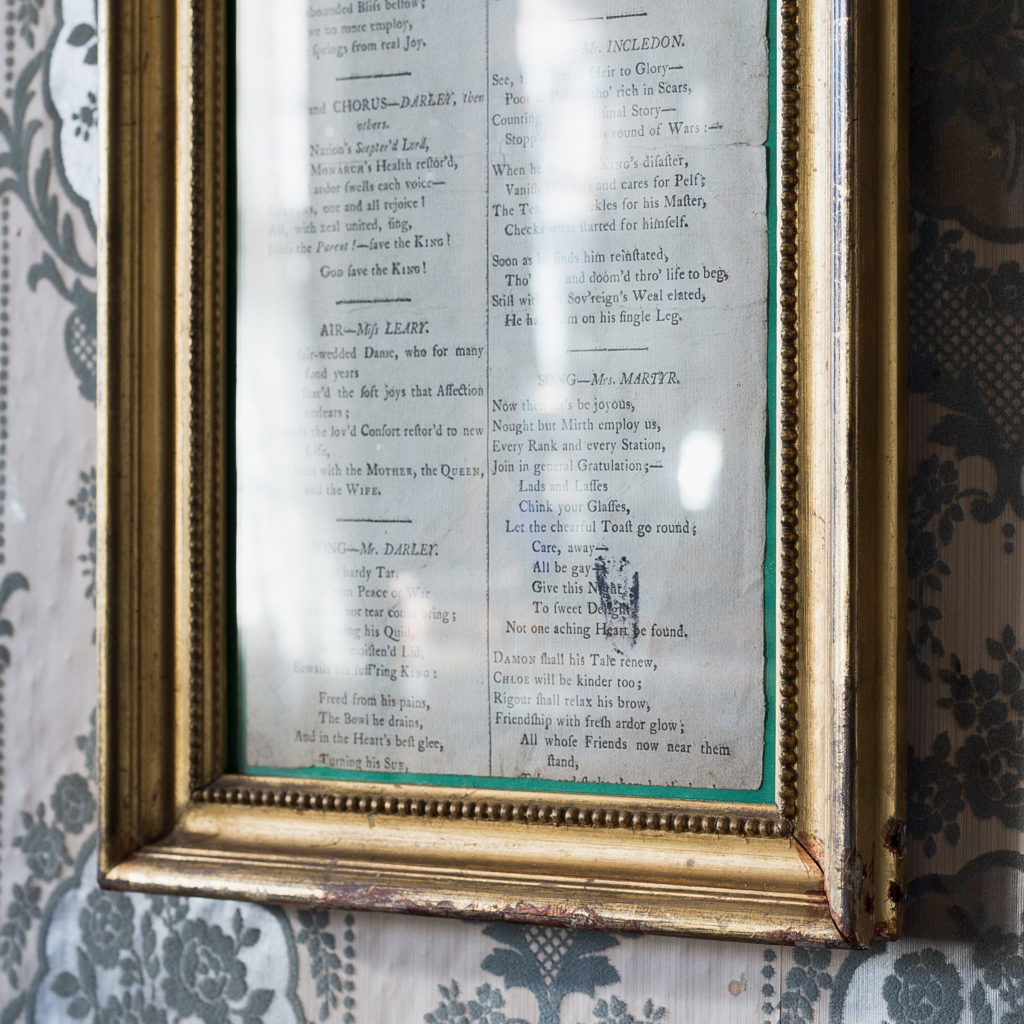 bounded Bliſs bellow;
we no more employ,
ſprings from real Joy.
and CHORUS—DARLEY, then
others.
Nation's Scepter'd Lord,
MONARCH's Health reſtor'd,
ardor ſwells each voice—
one and all rejoice!
with zeal united, ſing,
the Parent!—ſave the KING!
GOD ſave the KING!
AIR—Miſs LEARY.
-wedded Dame, who for many
fond years
the ſoft joys that Affection
endears;
the lov'd Conſort reſtor'd to new
Life,
with the MOTHER, the QUEEN,
and the WIFE.
SONG—Mr. DARLEY.
hardy Tar,
Peace or War
nor tear could bring;
his Quid,
moiſten'd Lid,
Bewails his ſuff'ring KING:
Freed from his pains,
The Bowl he drains,
And in the Heart's beſt glee,
Turning his SUE,
Mr. INCLEDON.
See, Heir to Glory—
tho' rich in Scars,
Counting Story—
round of Wars:—
When he KING's diſaſter,
and cares for Pelf;
The for his Maſter,
Checks what ſtarted for himſelf.
Soon as he finds him reinſtated,
Tho' and doom'd thro' life to beg,
Still Sov'reign's Weal elated,
He on his ſingle Leg.
SONG—Mrs. MARTYR.
Now be joyous,
Nought but Mirth employ us,
Every Rank and every Station,
Join in general Gratulation;—
Lads and Laſſes
Chink your Glaſſes,
Let the chearful Toaſt go round;
Care, away—
All be gay—
Give this Night
To ſweet Delight,
Not one aching Heart be found.
DAMON ſhall his Tale renew,
CHLOE will be kinder too;
Rigour ſhall relax his brow,
Friendſhip with freſh ardor glow;
All whoſe Friends now near them
ſtand,